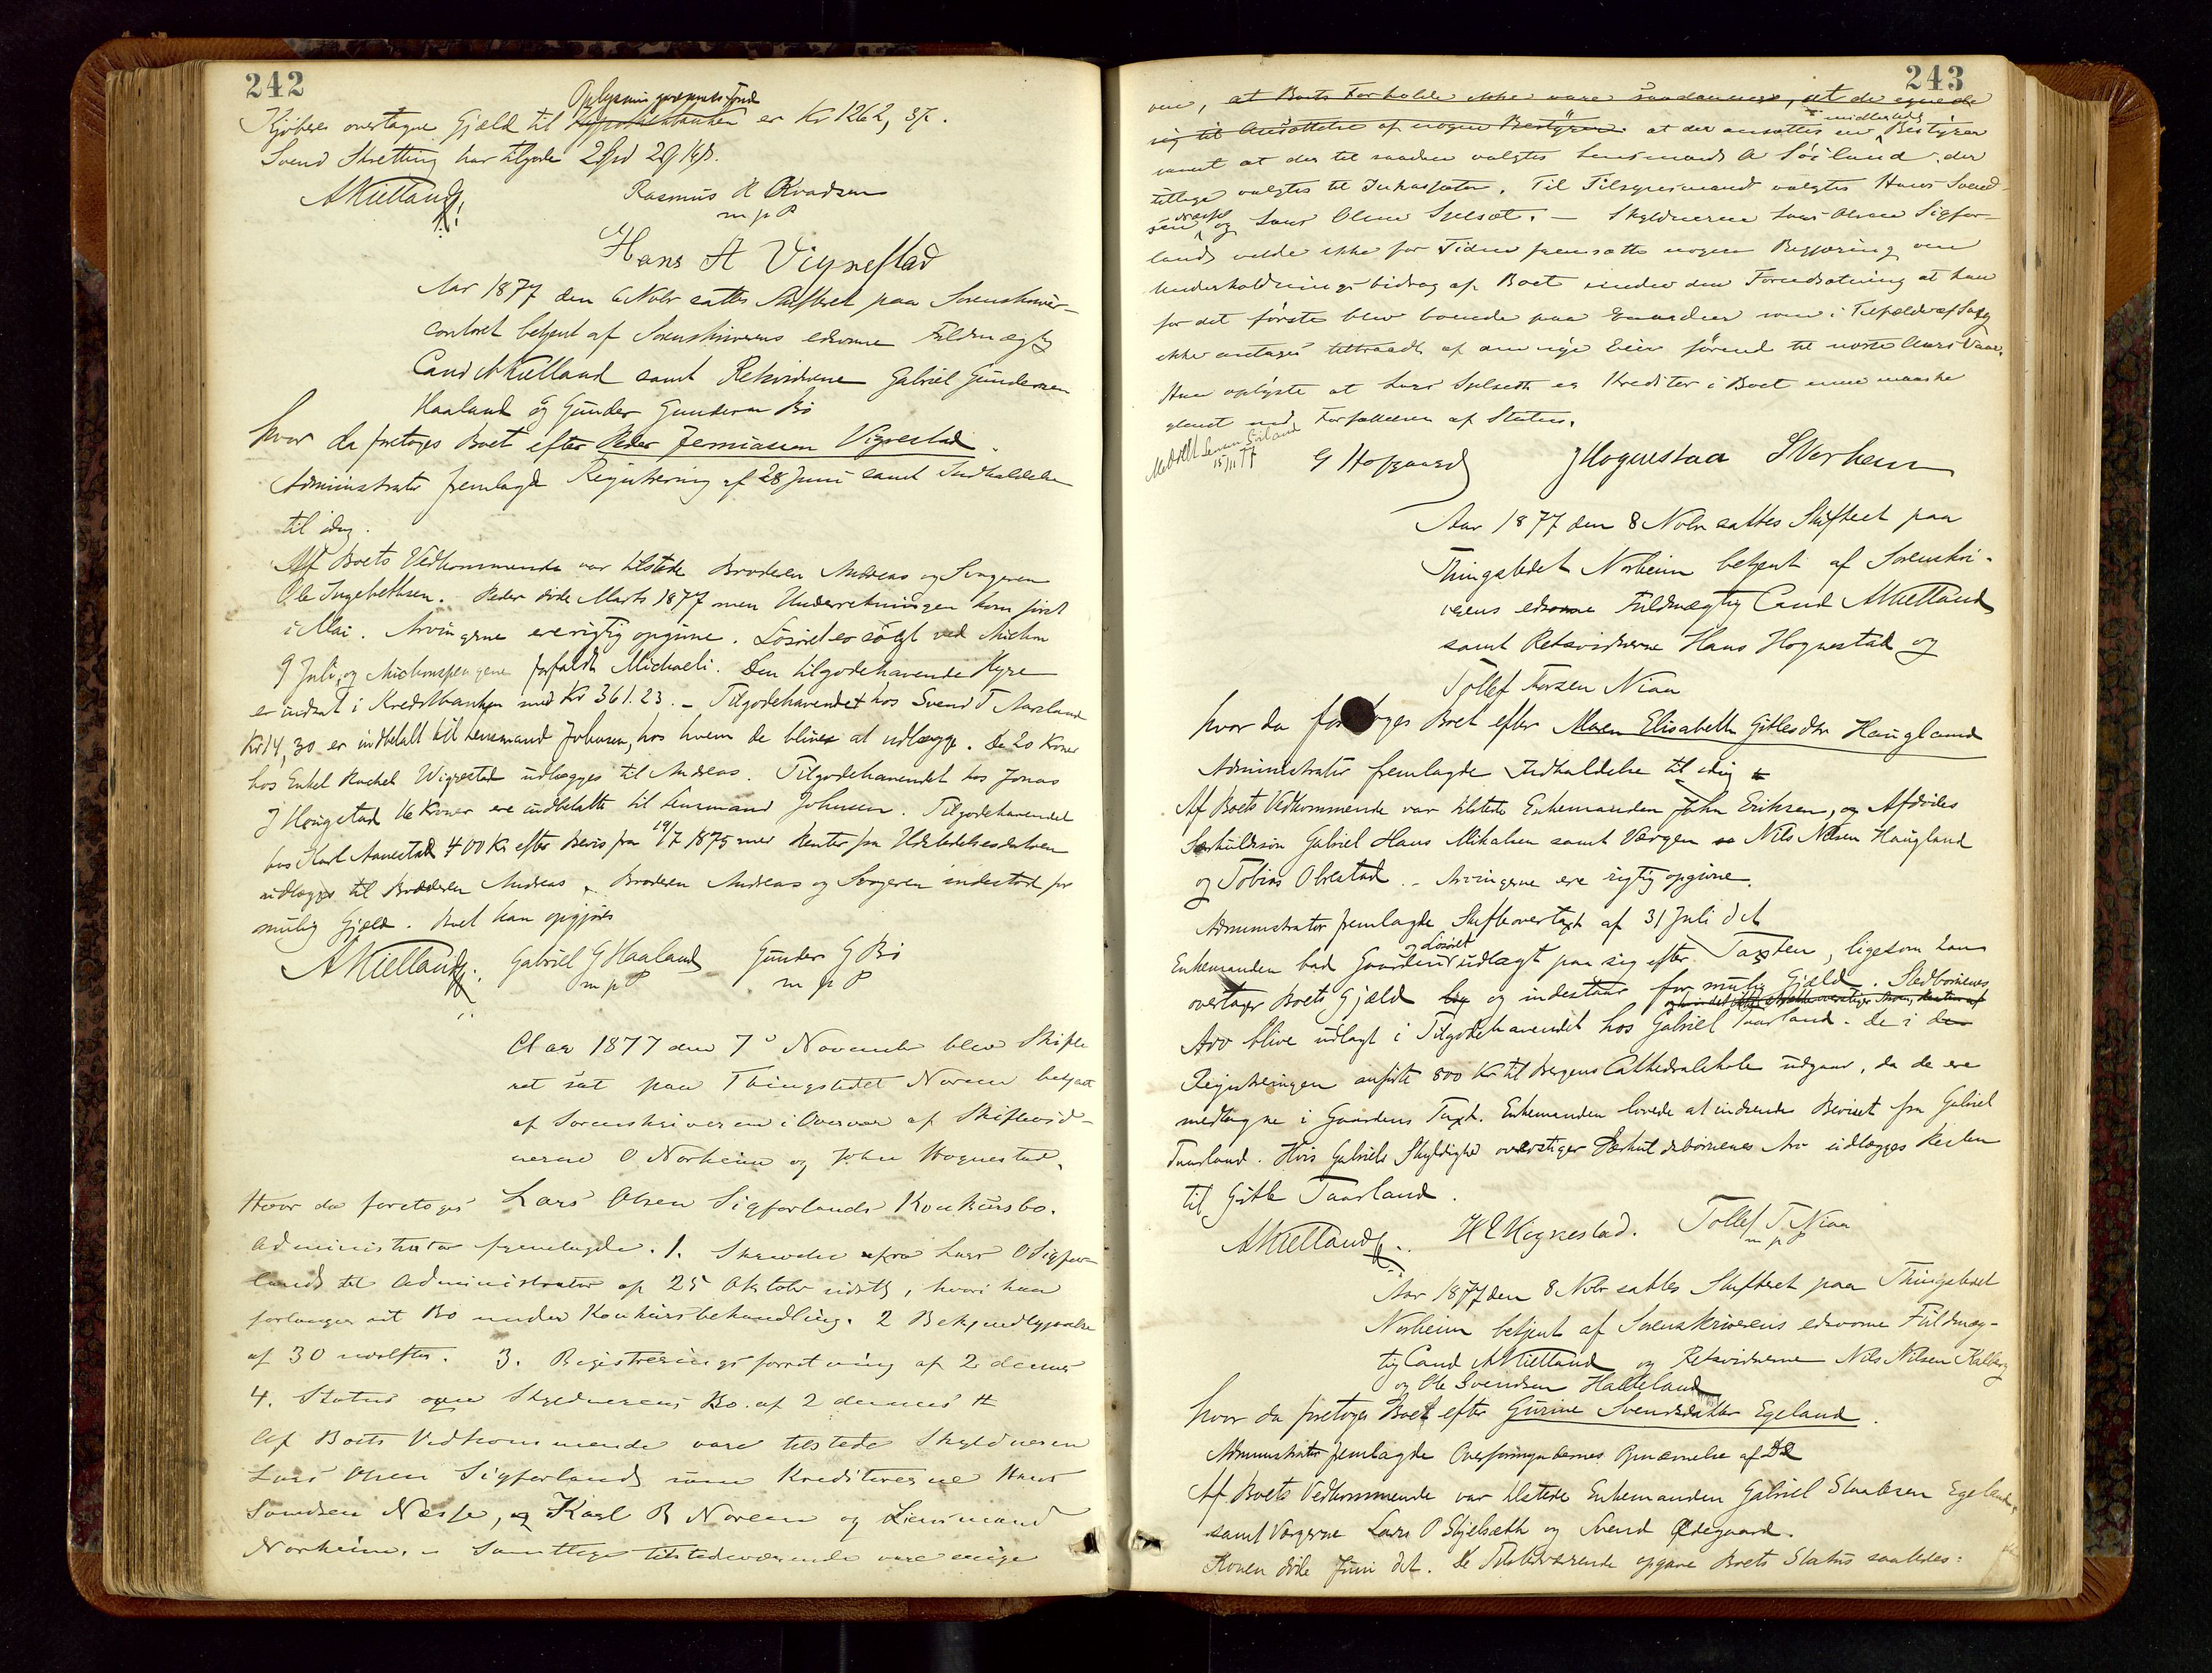 242
Oplysningsvæsenets Fond
Kjøberes overtagne Gjæld til Hypothekbanken er Kr 1262, 37.
Svend Skretting har tilgode 2 Spd 29 sk.
AKielland
Rasmus R Kvadsen
m p P
Hans A Vignestad
Aar 1877 den 6 Nobr sattes Skifteret paa Sorenskriver-
contoret betjent af Sorenskriverens edsvorne Fuldmægtig
Cand AKielland samt Retsvidnerne Gabriel Gundersen
Haaland og Gunder Gundersen Bø
hvor da foretoges Boet efter Peder Jemiassen Vigrestad.
Administrator fremlagde Registrering af 28 Juni samt Indkaldelse
til idag.
Af Boets Vedkommende var tilstede Broderen Andreas og Svogeren
Ole Ingebrethsen. Peder døde Marts 1877 men Underretningen kom først
i Mai. Arvingerne ere rigtig opgivne. Løsøret er solgt ved Auction
9 Juli, og Auctionspengene forfaldt Michaeli. Den tilgodehavende Hyre
er indsat i Kreditbanken med Kr 361.23. – Tilgodehavendet hos Svend T Aarsland
Kr 14,30 er indbetalt til Lensmand Johnsen, hos hvem de bliver at udlægge. De 20 Kroner
hos Enkel Rachel Wigrestad udlægges til Andreas. Tilgodehavendet hos Jonas
J Haugstad 16 Kroner ere indbetalte til Lensmand Johnsen. Tilgodehavendet
hos Karl Aanestad 400 Kr efter Bevis fra 19/7 1875 med Renter fra Udstedelsesdatoen
udlægges til Broderen Andreas. Broderen Andreas og Svogeren indestod for
mulig Gjæld. Boet kan opgjøres
AKielland Gabriel G Haaland Gunder G Bø
m p P m p P
Aar 1877 den 7de November blev Skifte
ret sat paa Thingstedet Noreim betjent
af Sorenskriveren i Overvær af Skiftevid-
nerne O Norheim og John Hognestad.
Hvor da foretoges Lars Olsen Sigforlands Konkursbo.
Administrator fremlagde. 1. Skrivelse fra Lars O Sigfor-
lands til Administrator af 25 Oktober sidstl, hvori han
forlanger sit Bo under Konkursbehandling. 2 Bekjendtgjørelse
af 30 næstefter. 3. Registreringsforretning af 2 dennes
4. Status over Skyldnerens Bo af 2 dennes
Af Boets Vedkommende vare tilstede Skyldneren
Lars Olsen Sigforland samt Kreditorerne Hans
Svendsen Nesse, og Karl B Noreim og Lensmand
Norheim. – Samtlige tilstedeværende vare enige
243
om, at Boets Forholde ikke vare saadanne, at de egnede
sig til Ansættelse af nogen Bestyrer. at der ansattes en midlertidig Bestyrer
samt at der til saadan valgtes Lensmand A Søiland der
tillige valgtes til Inkassator. Til Tilsynsmænd valgtes Hans Svend-
sen og Lars Olsen Sjelset. – Skyldneren Lars Olsen Sigfor-
land vilde ikke for Tiden fremsætte nogen Begjæring om
Underholdningsbidrag af Boet under den Forudsætning at han
for det første blev boende paa Gaarden som i Tilfælde af Salg
ikke antages tiltraadt af den nye Eier førend til næste Aars Vaar.
Han oplyste at Lars Sjelseth er Kreditor i Boet
glemt ved Forfattelsen af Status.
15/11 77
G Hofgaard JHognestad SNorheim
Aar 1877 den 8 Nobr sattes Skifteret paa
Thingstedet Norheim betjent af Sorenskri-
verens edsvorne Fuldmægtig Cand AKielland
samt Retsvidnerne Hans Hognestad og
Tollef Torsen Niaa
hvor da foretoges Boet efter Maren Elisabeth Gitlesdtr Haugland
Administrator fremlagde Indkaldelse til idag
Af Boets Vedkommende var tilstede Enkemanden John Eriksen, og Afdødes
Særkuldssøn Gabriel Hans Mikalsen samt Værgen Nils Nilsen Haugland
og Tobias Obrestad. – Arvingerne ere rigtig opgivne.
Administrator fremlagde Skifteovertaxt af 31 Juli d A
Enkemanden bad Gaarden og Løsøret udlagt paa sig efter Taxten, ligesom han
overtager Boets Gjæld og indestaar for mulig Gjæld. Stedbørnenes
Arv blive udlagt i Tilgodehavendet hos Gabriel Taarland. De i den
Registreringen anførte 800 Kr til Bergens Cathedralskole udgaar, da de ere
medtagne i Gaardens Taxt. Enkemanden lovede at indsende Beviset fra Gabriel
Taarland. Hvis Gabriels Skyldighed overstiger Særkuldsbørnenes Arv udlægges Resten
til Gitle Taarland.
AKielland H E Hognestad. Tollef T. Niaa
m p P
Aar 1877 den 8 Nobr sattes Skifteret paa Thingstedet
Norheim betjent af Sorenskriverens edsvorne Fuldmæg-
tig Cand AKielland og Retsvidnerne Nils Nilsen Kalberg
og Ole Svendsen Haaeland
hvor da foretoges Boet efter Gurine Svendsdatter Egeland.
Administrator fremlagde Overformynderiets Opnævnelse af DD
Af Boets Vedkommende var tilstede Enkemanden Gabriel Staalesen Egeland,
samt Værgerne Lars O Skjelsæth og Svend Ødegaard.
Konen døde Juni d A. De Tilstedeværende opgave Boets Status saaledes: